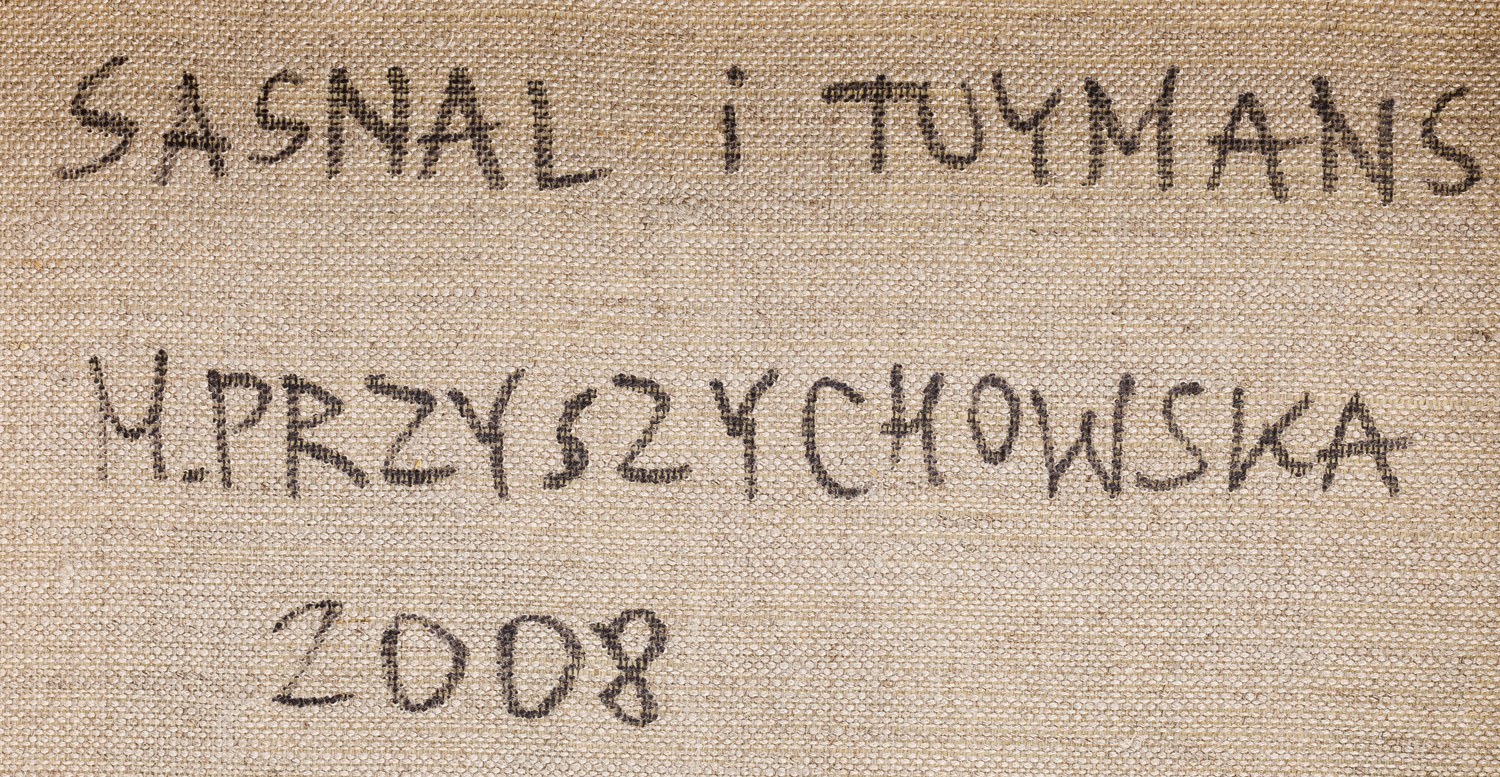 SASNAL i TUYMANS
M.PRZYSZYCHOWSKA
2008